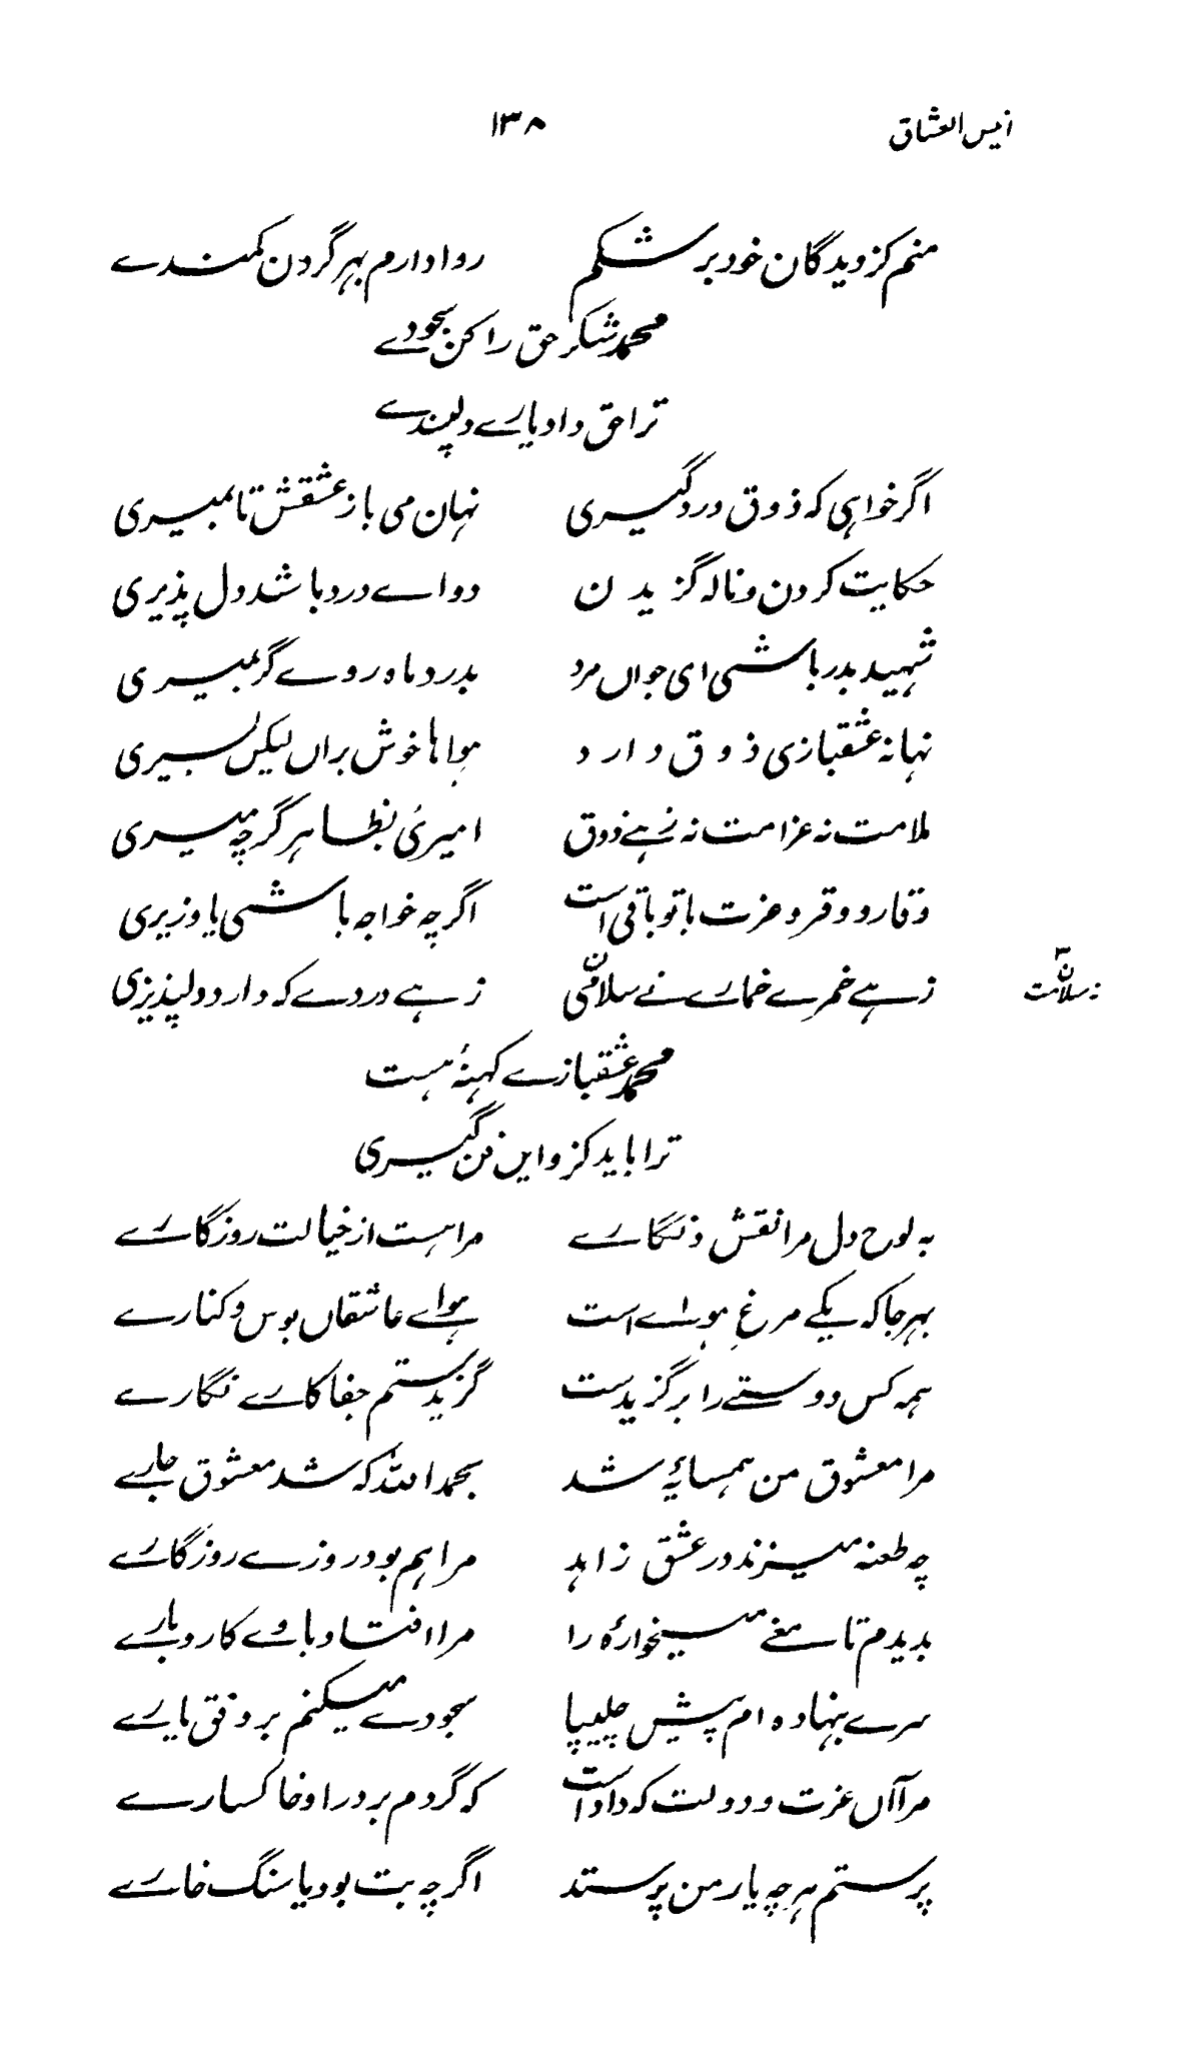 انیس العشاق ۱۳۸
منم کز دیدگان خود بر شکم روا دارم بہر گردن کمندے
محمد شکر حق را کن سجودے
ترا حق داد یارے دلپندے
اگر خواہی کہ ذوق درد گیری نہان می باز عشقش تا بمیری
حکایت کردن و نالہ گزیدن دواے درد باشد دل پذیری
شہید بدر باشی ای جواں مرد بدرد ماہ روے گر بمیری
نہانہ عشقبازی ذوق دارد ہواہا خوش براں لیکن بسیری
ملامت نہ غرامت نہ زہے ذوق امیریٔ بظاہر گرچہ میری
وقار و وقر و عزت با تو باقی است اگرچہ خواجہ باشی یا وزیری
زہے خمرے خمارے نے سلامیٔ زہے دردے کہ دارد دلپذیری
ن سلامت
محمد عشقبازے کہنۂ ہست
ترا باید کزو این فن گیری
بہ لوح دل مرا نقش و نگارے مرا ہست از خیالت روزگارے
بہر جا کہ یکے مرغِ ہواے است ہواے عاشقاں بوس و کنارے
ہمہ کس دوستے را برگزیدست گزیدستم جفا کارے نگارے
مرا معشوق من ہمسایۂ شد بحمد اللہ کہ شد معشوق جارے
چہ طعنہ میزند در عشق زاہد مرا ہم بود روزے روزگارے
بدیدم تا مغے میخوارۂ را مرا افتاد با وے کار و بارے
سرے بنہادہ ام پیش چلیپا سجودے میکنم بر وفق یارے
مرا آں عزت و دولت کہ داد است کہ گردم بر در او خاکسارے
پرستم ہر چہ یار من پرستد اگرچہ بت بود یا سنگ خارے